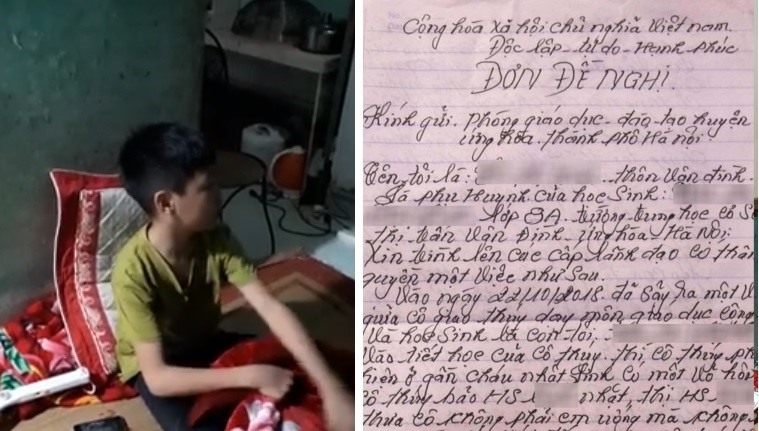 Cộng hòa xã hội chủ nghĩa Việt nam.
Độc lập - tự do - Hạnh phúc
ĐƠN ĐỀ NGHỊ
Kính gửi. Phòng giáo dục - đào tạo huyện
ứng hòa. thành phố Hà nội
Tên tôi là: thôn vân đình -
Là phụ Huynh của học Sinh:
lớp 8A. trường trung học cơ Sở
thị trấn Vân Đình, ứng hòa - Hà Nội
Xin trình lên các cấp lãnh đạo có thẩm
quyền một việc như sau.
Vào ngày 22/10/2018 đã Sẩy ra một
giữa cô giáo thủy dạy môn giáo dục công
Và học Sinh là con tôi.
Vào tiết học của cô thủy. thì cô thủy ph
hiện ở gần cháu nhất Sinh có một vỏ
cô thủy bảo HS nhặt, thì HS
thưa cô không phải em uống mà không